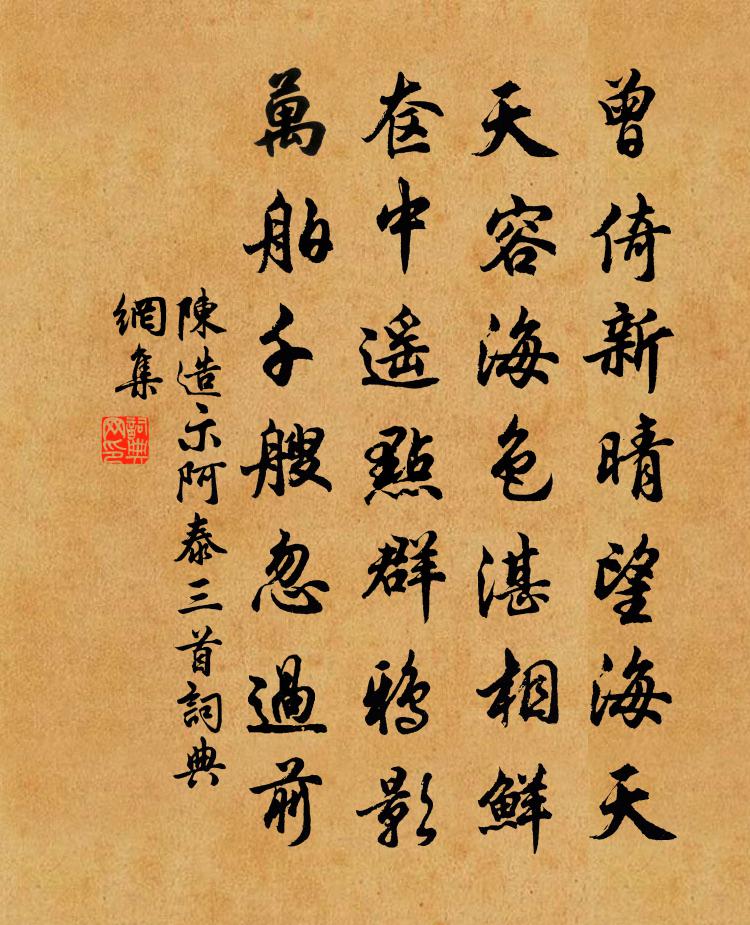 曾倚新晴望海天
天容海色湛相鮮
夽中遥點群鴉影
萬舶千艘忽過前
陳造示阿泰三首詞典
網集
詞典
网印